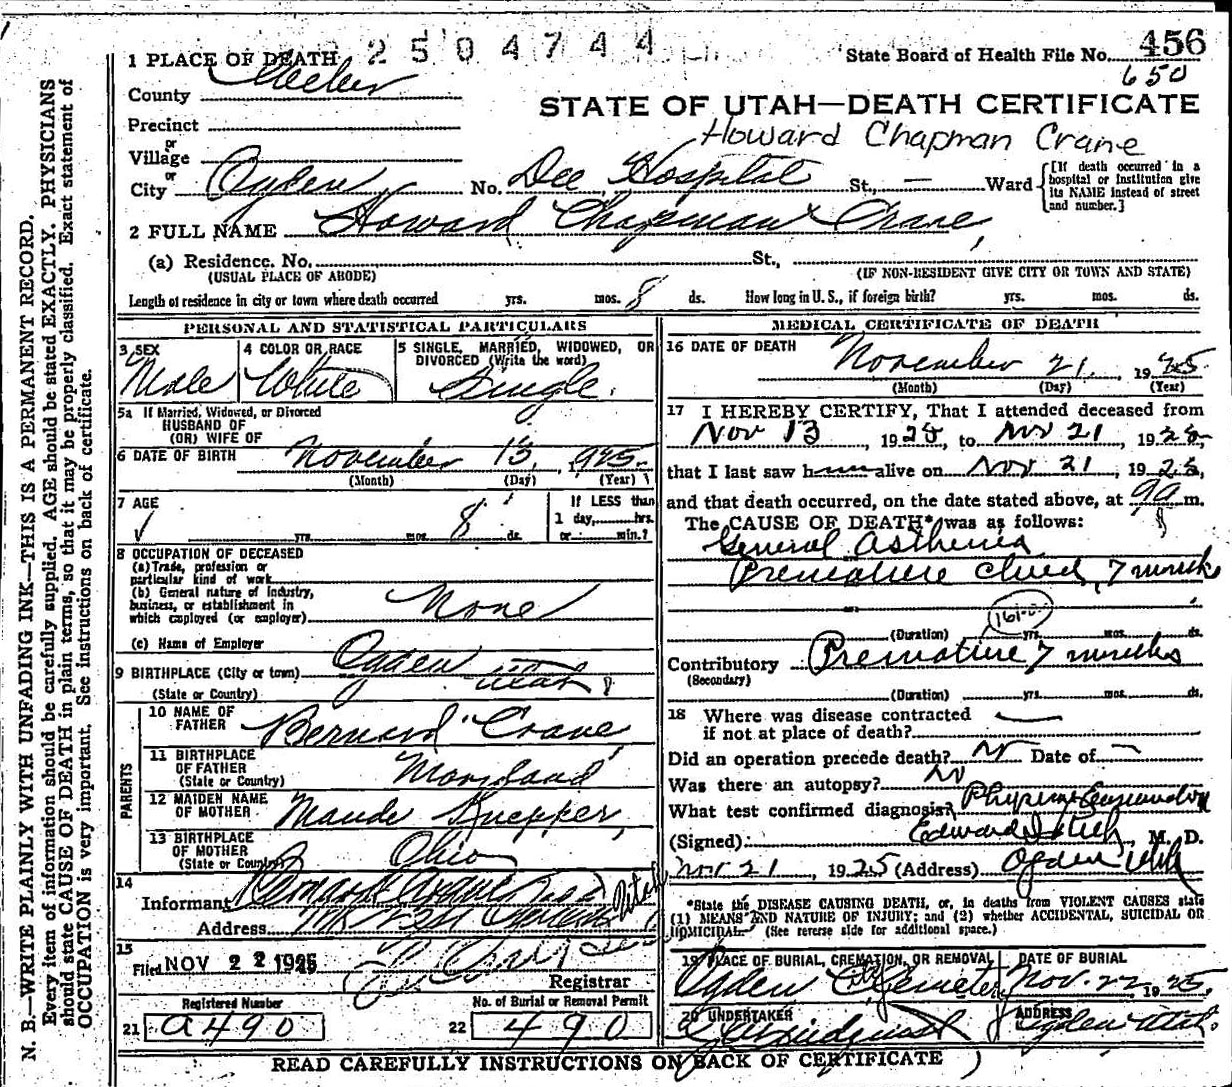 2504744
State Board of Health File No. 456
650
1 PLACE OF DEATH
County
STATE OF UTAH—DEATH CERTIFICATE
Precinct
Howard Chapman Crane
or
Village
or
City Ogden No. Dee Hospital St., — Ward
[If death occurred in a hospital or institution give its NAME instead of street and number.]
2 FULL NAME Howard Chapman Crane
(a) Residence. No. St.,
(USUAL PLACE OF ABODE) (IF NON-RESIDENT GIVE CITY OR TOWN AND STATE)
Length of residence in city or town where death occurred yrs. mos. 8 ds. How long in U. S., if foreign birth? yrs. mos. ds.
PERSONAL AND STATISTICAL PARTICULARS
3 SEX
Male
4 COLOR OR RACE
White
5 SINGLE, MARRIED, WIDOWED, OR DIVORCED (Write the word)
Single
5a If Married, Widowed, or Divorced
HUSBAND OF
(OR) WIFE OF
6 DATE OF BIRTH November 13, 1925
(Month) (Day) (Year)
7 AGE
yrs. mos. 8 ds.
If LESS than
1 day, hrs.
or min.?
8 OCCUPATION OF DECEASED
(a) Trade, profession or
particular kind of work
(b) General nature of Industry,
business, or establishment in
which employed (or employer) None
(c) Name of Employer
9 BIRTHPLACE (City or town) Ogden Utah
(State or Country)
PARENTS
10 NAME OF FATHER Bernard Crane
11 BIRTHPLACE OF FATHER (State or Country) Maryland
12 MAIDEN NAME OF MOTHER Maude Knepper
13 BIRTHPLACE OF MOTHER (State or Country) Ohio
14
Informant
Address
15
Filed NOV 22 1925
Registrar
Registered Number
21 a490
No. of Burial or Removal Permit
22 490
MEDICAL CERTIFICATE OF DEATH
16 DATE OF DEATH
November 21, 1925
(Month) (Day) (Year)
17 I HEREBY CERTIFY, That I attended deceased from
Nov 13, 1925, to Nov 21, 1925,
that I last saw him alive on Nov 21, 1925,
and that death occurred, on the date stated above, at 9a m.
The CAUSE OF DEATH* was as follows:
General Asthenia
Premature child, 7 months
(Duration) yrs. mos. ds.
Contributory Premature 7 months
(Secondary)
(Duration) yrs. mos. ds.
18 Where was disease contracted
if not at place of death?
Did an operation precede death? No Date of —
Was there an autopsy? No
What test confirmed diagnosis?
(Signed) Edward M. D.
Nov 21 1925 (Address) Ogden Utah
*State the DISEASE CAUSING DEATH, or, in deaths from VIOLENT CAUSES state
(1) MEANS AND NATURE OF INJURY; and (2) whether ACCIDENTAL, SUICIDAL OR
HOMICIDAL. (See reverse side for additional space.)
19 PLACE OF BURIAL, CREMATION, OR REMOVAL
Ogden City Cemetery
DATE OF BURIAL
Nov. 22, 1925
20 UNDERTAKER
ADDRESS
Ogden Utah.
READ CAREFULLY INSTRUCTIONS ON BACK OF CERTIFICATE
N. B.—WRITE PLAINLY WITH UNFADING INK—THIS IS A PERMANENT RECORD.
Every item of information should be carefully supplied. AGE should be stated EXACTLY. PHYSICIANS
should state CAUSE OF DEATH in plain terms, so that it may be properly classified. Exact statement of
OCCUPATION is very important. See instructions on back of certificate.